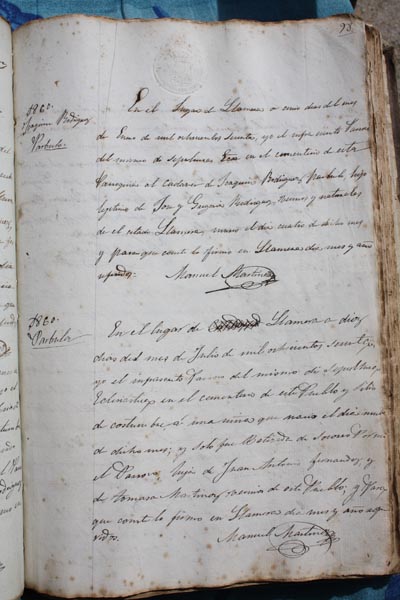 93
1860
Joaquin Rodriguez
Parbulo
En el lugar de Llamera a cinco dias del mes
de Enero de mil ochocientos sesenta, yo el infrascrito Parroco
del mismo di sepultura Ecca en el cementerio de esta
Parroquia al cadaver de Joaquin Rodriguez, Parbulo hijo
legitimo de Jose y Gregoria Rodriguez, vecinos y naturales
de el citado Llamera, murio el dia cuatro de dicho mes,
y para que conste lo firmo en Llamera dia mes y año
referidos.
Manuel Martinez
1860
Parbula
En el lugar de Llamera a diez
dias del mes de Julio de mil ochocientos sesenta,
yo el infrascrito Parroco del mismo di sepultura
Eclesiastica en el cementerio de este Pueblo y sitio
de costumbre a una niña que nacio el dia nueve
de dicho mes, y solo fue
el Parroco, hija de Juan Antonio Fernandez, y
de Tomasa Martinez vecinos de este Pueblo; y para
que conste lo firmo en Llamera dia mes y año
Manuel Martinez